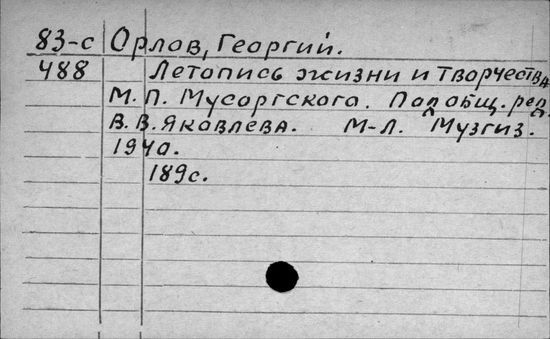 83-с Орлов, Георгий.
488 Летопись жизни и творчества
М. П. Мусоргского. Под общ. ред.
В. В. Яковлева. М-Л. Музгиз.
1940.
189с.